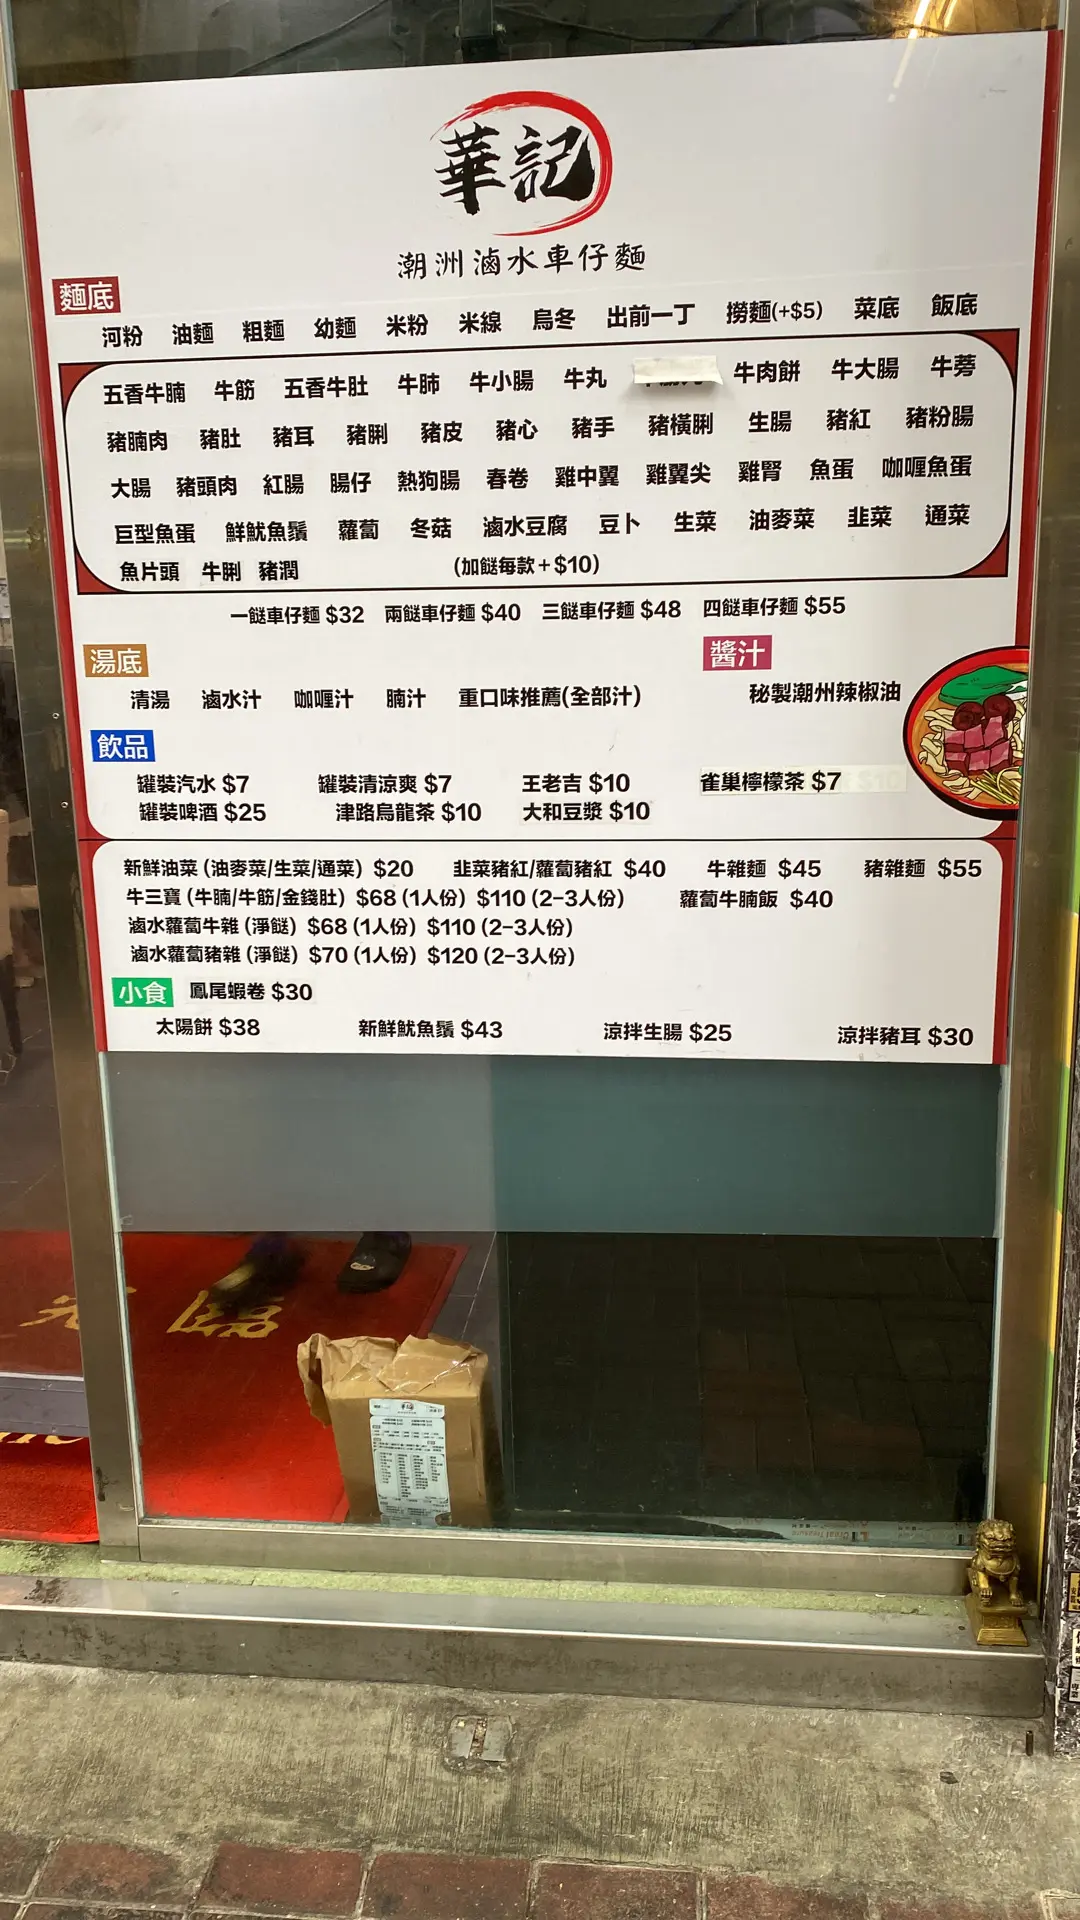 華記
潮洲滷水車仔麵
麵底
河粉 油麵 粗麵 幼麵 米粉 米線 烏冬 出前一丁 撈麵(+$5) 菜底 飯底
五香牛腩 牛筋 五香牛肚 牛肺 牛小腸 牛丸 牛肉餅 牛大腸 牛蒡
豬腩肉 豬肚 豬耳 豬脷 豬皮 豬心 豬手 豬橫脷 生腸 豬紅 豬粉腸
大腸 豬頭肉 紅腸 腸仔 熱狗腸 春卷 雞中翼 雞翼尖 雞腎 魚蛋 咖喱魚蛋
巨型魚蛋 鮮魷魚鬚 蘿蔔 冬菇 滷水豆腐 豆卜 生菜 油麥菜 韭菜 通菜
魚片頭 牛脷 豬潤 (加餸每款+$10)
一餸車仔麵 $32 兩餸車仔麵 $40 三餸車仔麵 $48 四餸車仔麵 $55
湯底 醬汁
清湯 滷水汁 咖喱汁 腩汁 重口味推薦(全部汁) 秘製潮州辣椒油
飲品
罐裝汽水 $7 罐裝清涼爽 $7 王老吉 $10 雀巢檸檬茶 $7
罐裝啤酒 $25 津路烏龍茶 $10 大和豆漿 $10
新鮮油菜 (油麥菜/生菜/通菜) $20 韭菜豬紅/蘿蔔豬紅 $40 牛雜麵 $45 豬雜麵 $55
牛三寶 (牛腩/牛筋/金錢肚) $68 (1人份) $110 (2-3人份) 蘿蔔牛腩飯 $40
滷水蘿蔔牛雜 (淨餸) $68 (1人份) $110 (2-3人份)
滷水蘿蔔豬雜 (淨餸) $70 (1人份) $120 (2-3人份)
小食 鳳尾蝦卷 $30
太陽餅 $38 新鮮魷魚鬚 $43 涼拌生腸 $25 涼拌豬耳 $30